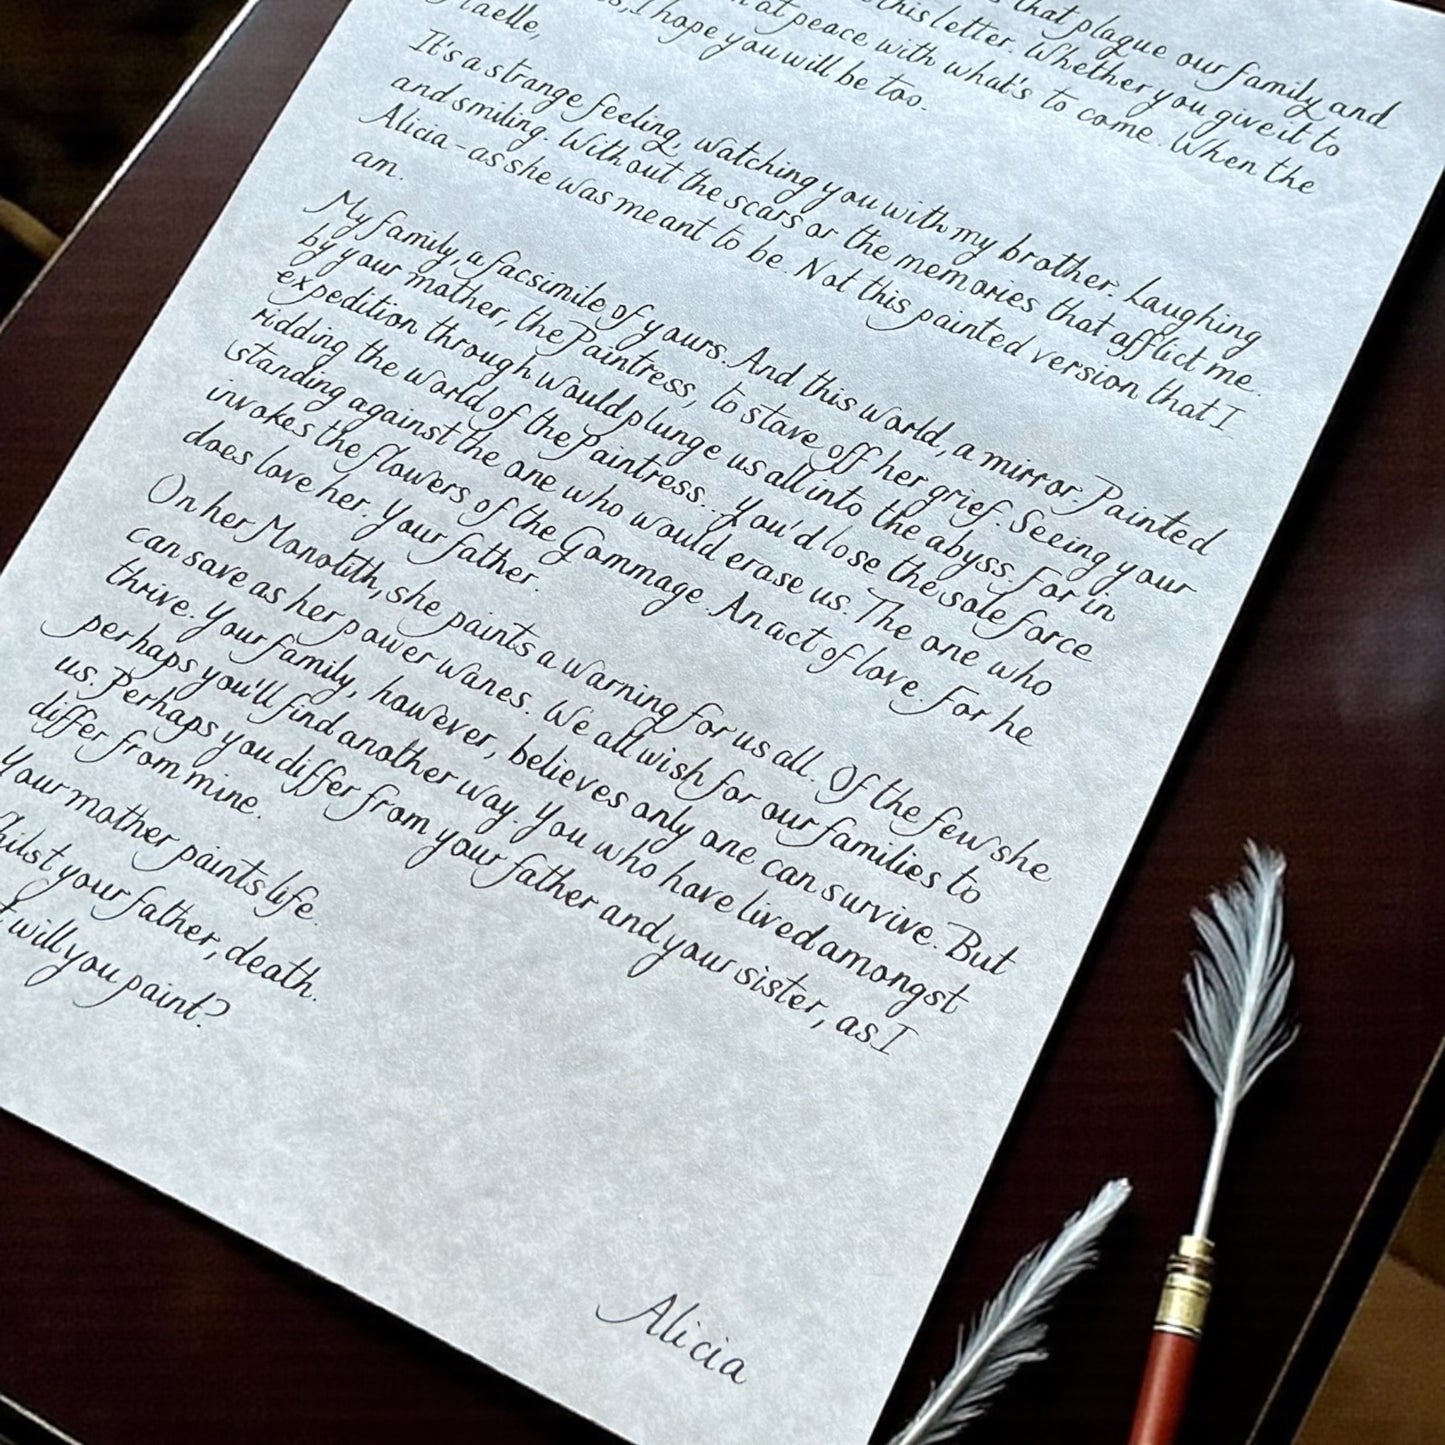 that plague our family and
this letter. Whether you give it to
at peace with what's to come. When the
I hope you will be too.
It's a strange feeling, watching you with my brother. Laughing
and smiling. Without the scars or the memories that afflict me.
Alicia - as she was meant to be. Not this painted version that I
am.
My family, a facsimile of yours. And this world, a mirror Painted
by your mother, the Paintress, to stave off her grief. Seeing your
expedition through would plunge us all into the abyss. For in
ridding the world of the Paintress... You'd lose the sole force
standing against the one who would erase us. The one who
invokes the flowers of the Gommage. An act of love. For he
does love her. Your father.
On her Monolith, she paints a warning for us all. Of the few she
can save as her power wanes. We all wish for our families to
thrive. Your family, however, believes only one can survive. But
perhaps you'll find another way. You who have lived amongst
us. Perhaps you differ from your father and your sister, as I
differ from mine.
Your mother paints life.
your father, death.
will you paint?
Alicia